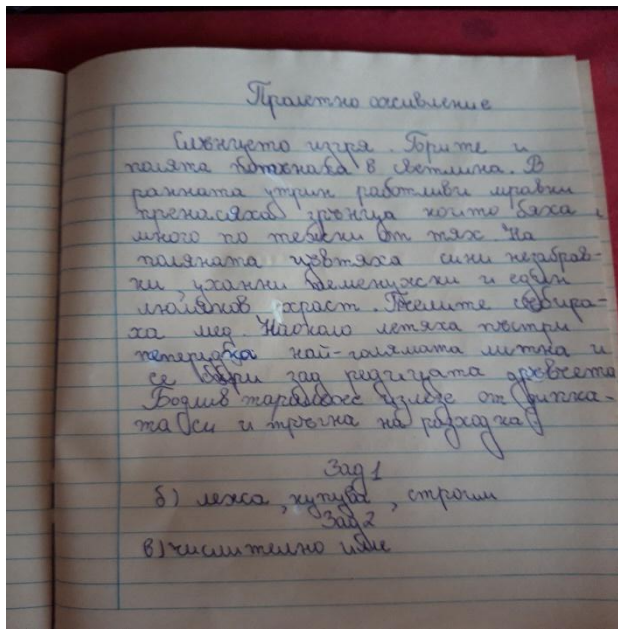 Пролетно оживление
Слънцето изгря. Горите и
полята потънаха в светлина. В
ранната утрин работливи мравки
пренасяха зрънца които бяха
много по тежки от тях. На
поляната цъвтяха сини незабрав-
ки, уханни теменужки и един
люляков храст. Пчелите събира-
ха мед. Наоколо летяха пъстри
пеперудки най-голямата литна и
се скри зад редицата дръвчета
Бодлив таралежос излезе от дупка-
та си и тръгна на разходка.
Зад 1
б) лежа, купува, строим
Зад 2
в) числително име